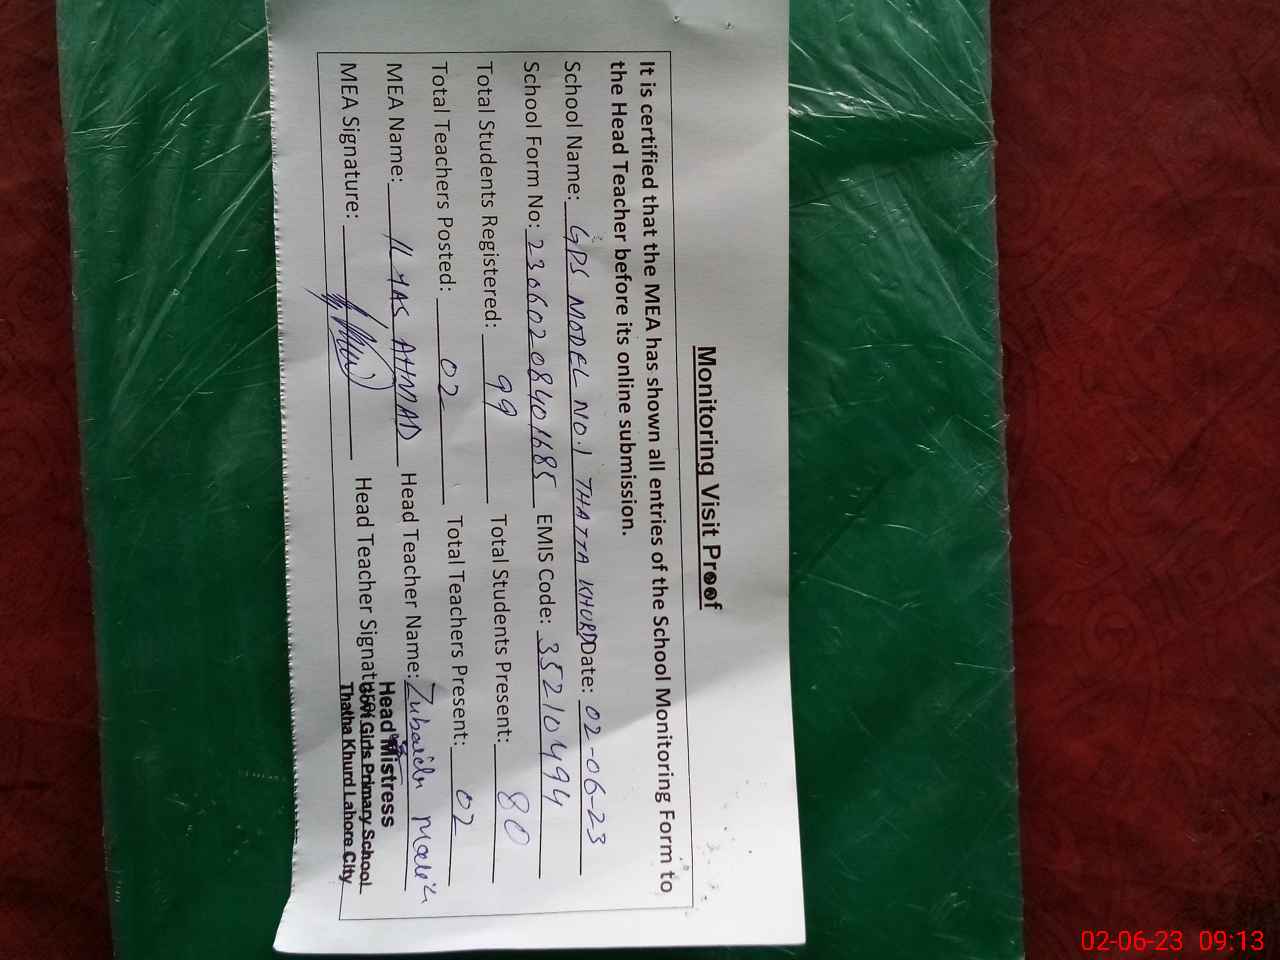 Monitoring Visit Proof
It is certified that the MEA has shown all entries of the School Monitoring Form to
the Head Teacher before its online submission.
School Name: GPS MODEL NO.1 THATTA KHURD Date: 02-06-23
School Form No: 23060208401685 EMIS Code: 35210494
Total Students Registered: 99 Total Students Present: 80
Total Teachers Posted: 02 Total Teachers Present: 02
MEA Name: ILMAS AHMAD Head Teacher Name: Zubaida Malik
MEA Signature: Head Teacher Signat
Head Mistress
Govt Girls Primary School
Thatha Khurd Lahore City
02-06-23 09:13